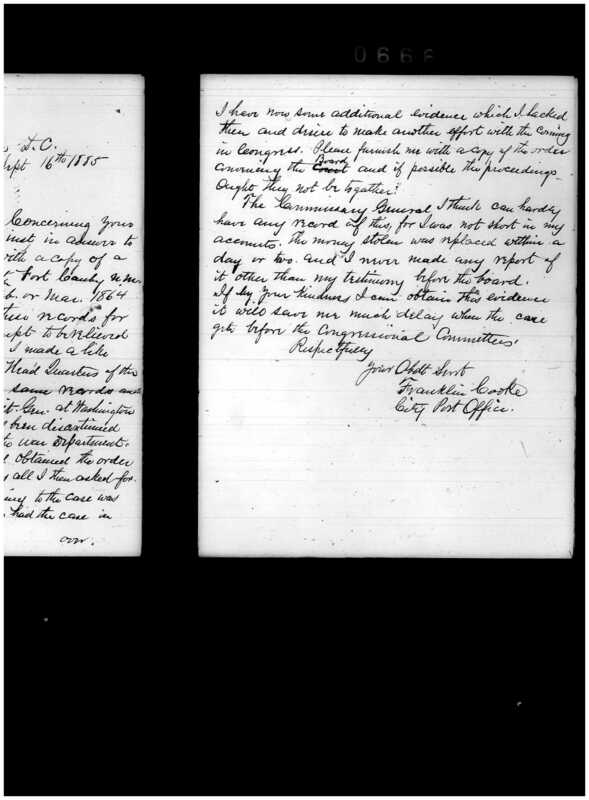 0668
D.C.
Sept 16th 1885
Concerning yours
inst in answer to
with a copy of a
Fort Canby N. Mex
b. or Mar. 1864
these records for
upt to be relieved
I made a like
Head Quarters of the
same records and
Gen. at Washington
been discontinued
to War Department.
obtained the order
all I then asked for.
to the case was
had the case in
over.
I have now some additional evidence which I lacked
then and desire to make another effort with the coming
in Congress. Please furnish me with a copy of the order
convening the Court Board and if possible the proceedings-
Ought they not be together?
The Commissary General I think can hardly
have any record of this, for I was not short in my
accounts. The money stolen was replaced within a
day or two. and I never made any report of
it other than my testimony before the board.
If by your kindness I can obtain this evidence
it will save me much delay when the case
gets before the Congressional Committees'
Respectfully
Your Obdt Servt
Franklin Cooke
City Post Office.